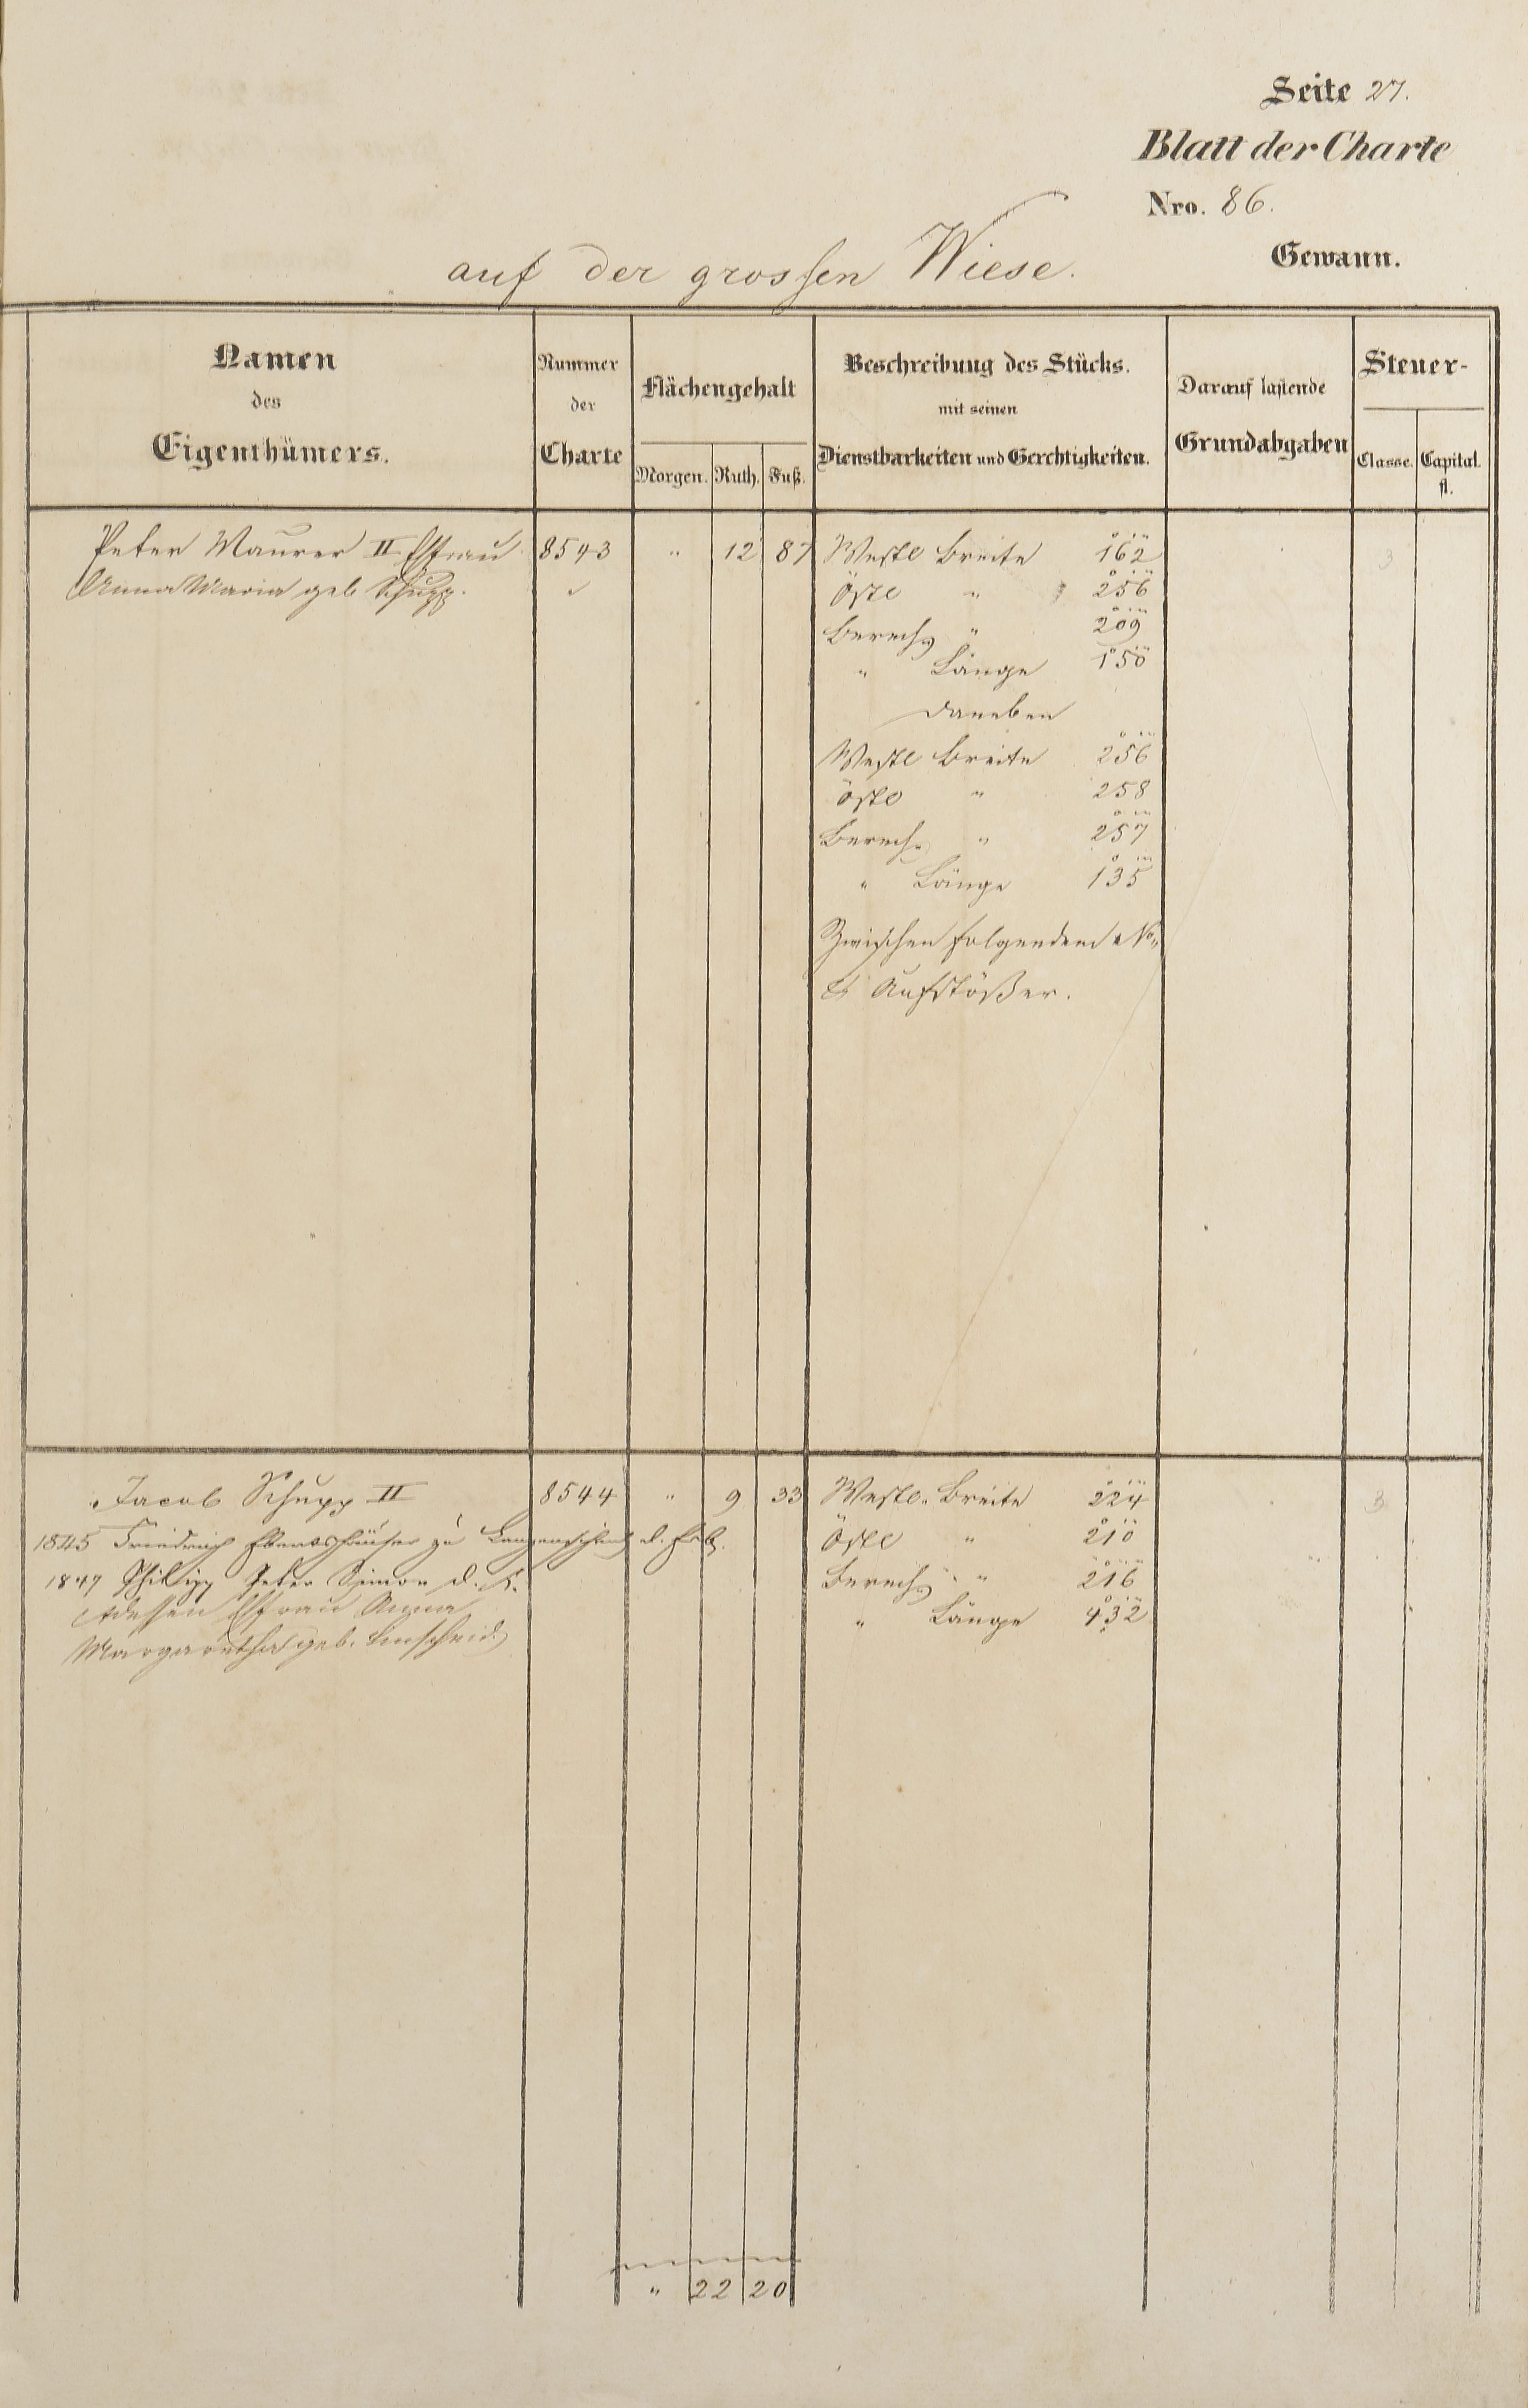 Seite 27.
Blatt der Charte
Nro. 86.
auf der grossen Wiese. Gewann.
Namen des Eigenthümers.
Nummer der Charte
Flächengehalt
Morgen. Ruth. Fuß.
Beschreibung des Stücks.
mit seinen
Dienstbarkeiten und Gerechtigkeiten.
Darauf lastende
Grundabgaben
Steuer-
Classe. Capital.
fl.
Peter Maurer II Ehfrau 8543 " 12 87 Westl Breite 162 3
Anna Maria geb Schupp. Östl " 256
Berech " 209
" Länge 150
daneben
Westl Breite 256
Östl " 258
Berech " 257
" Länge 135
Zwischen folgendem No
& Aufstößer.
Jacob Schupp II 8544 " 9 33 Westl. Breite 224 3
1845 Friedrich zu d. Östl " 210
1847 Philipp Peter Simon d. Berech " 216
dessen Ehfrau Anna " Länge 432
Margaretha geb. Linscheid
" 22 20